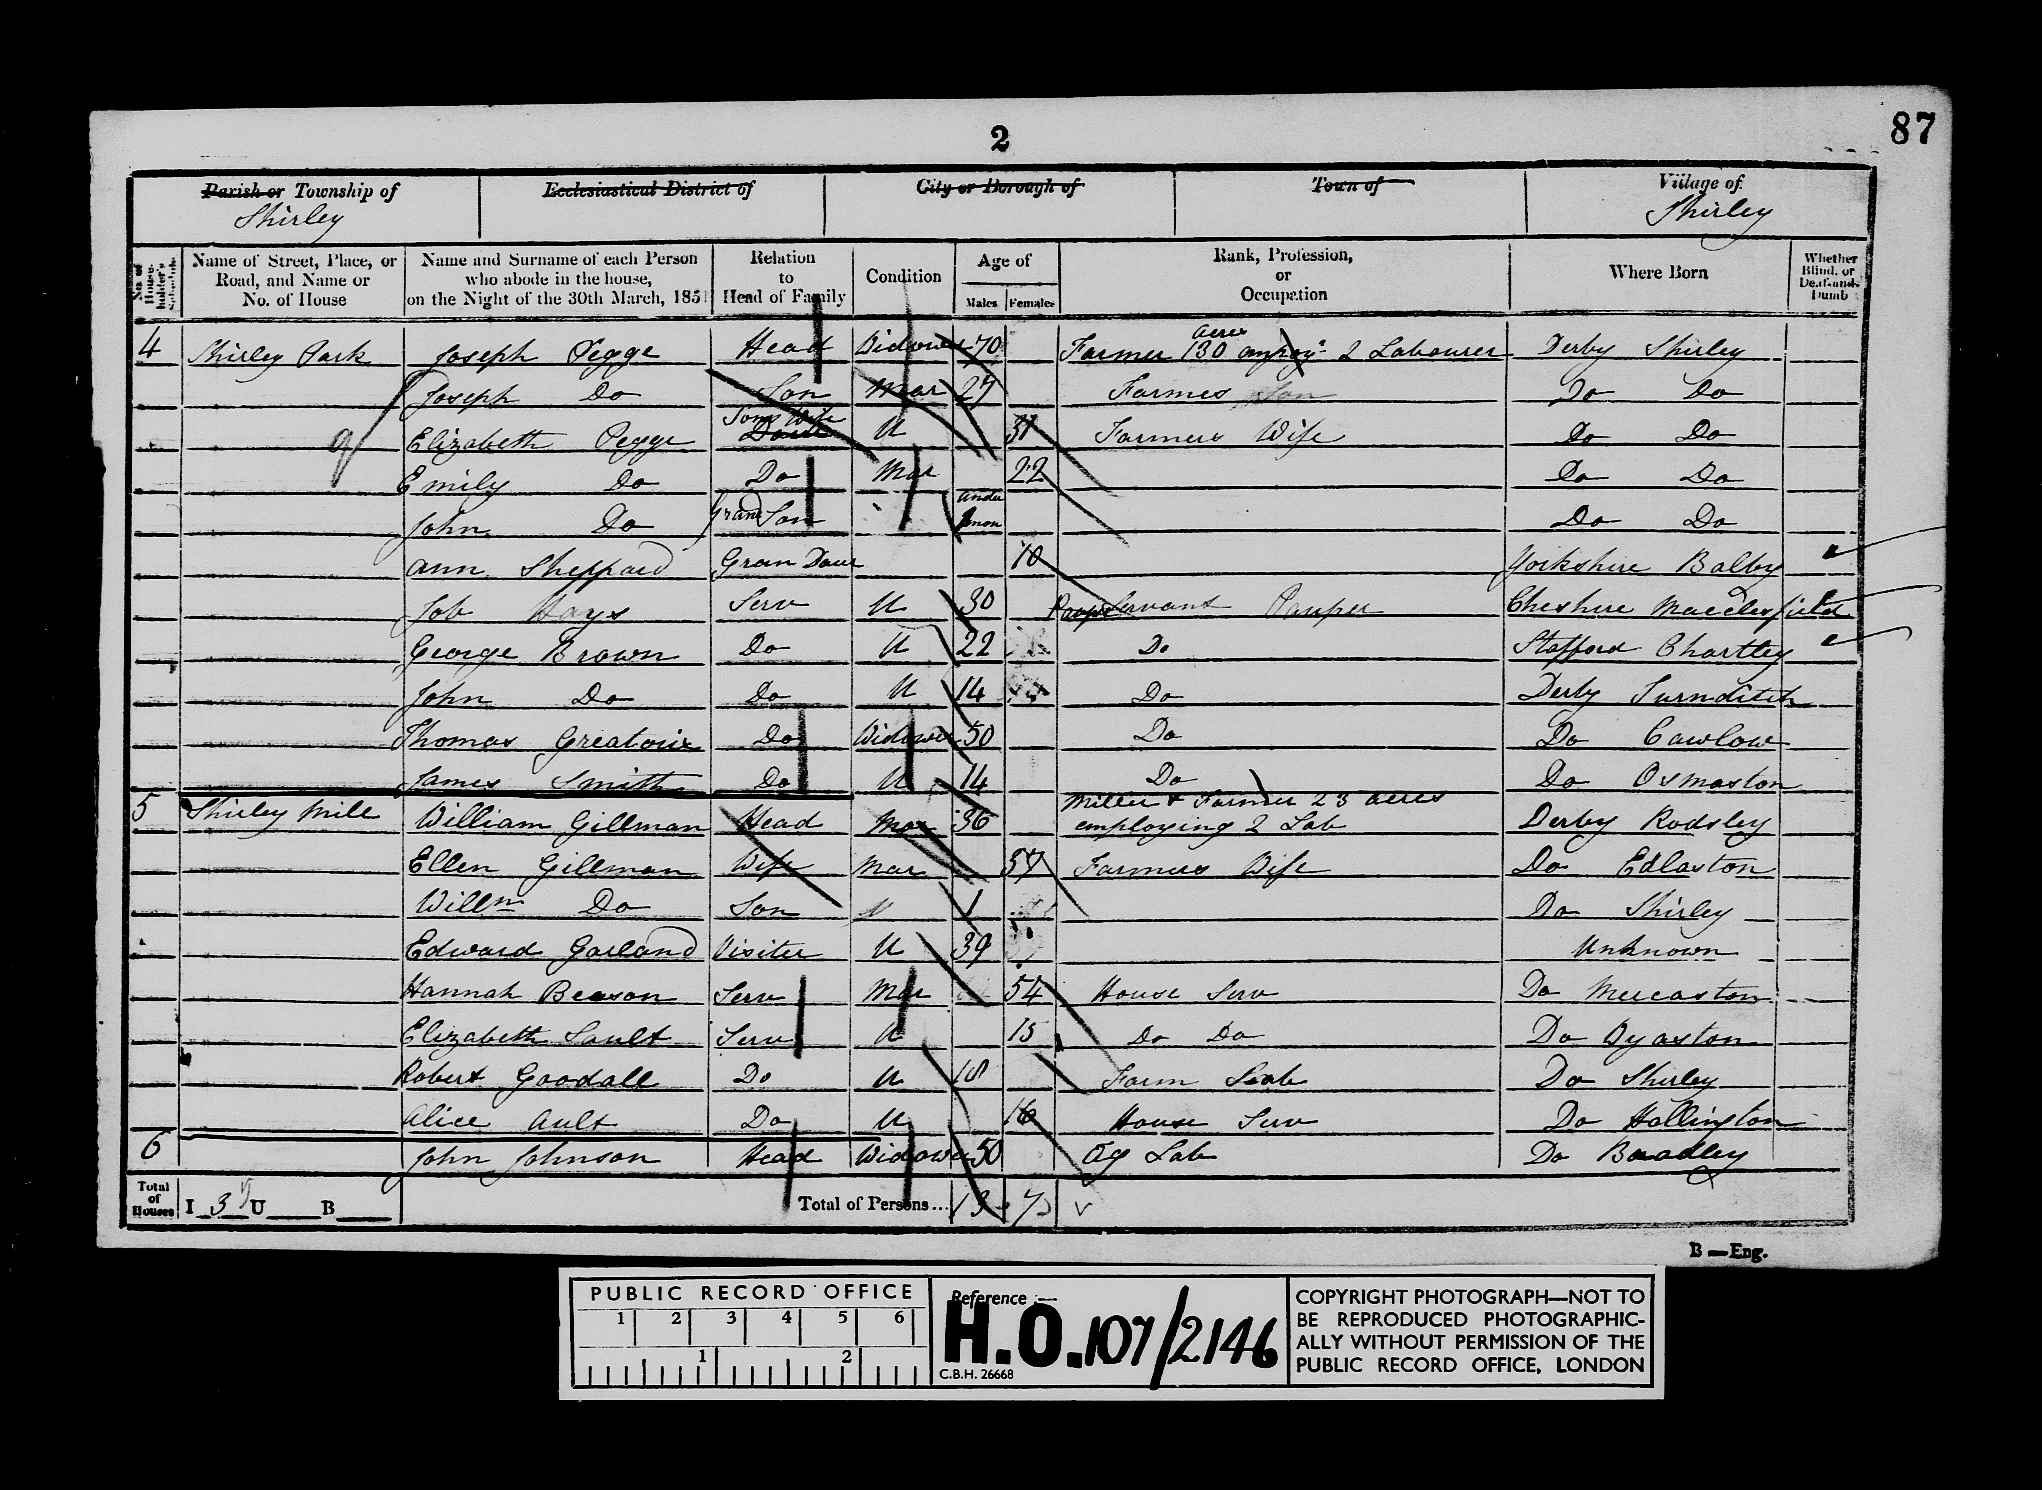 2
87
Parish or Township of
Shirley
Ecclesiastical District of
City or Borough of
Town of
Village of
Shirley
No. of House-holder's Schedule
Name of Street, Place, or Road, and Name or No. of House
Name and Surname of each Person who abode in the house, on the Night of the 30th March, 1851
Relation to Head of Family
Condition
Age of
Males Females
Rank, Profession, or Occupation
Where Born
Whether Blind, or Deaf-and-Dumb
4 Shirley Park Joseph Pegge Head Widower 70 Farmer 130 acres employg 2 Labourer Derby Shirley
Joseph Do Son Mar 27 Farmes Son Do Do
Elizabeth Pegge Sons Wife Daur U 31 Farmers Wife Do Do
Emily Do Do Mar 22 Do Do
John Do Grand Son under 1 mon Do Do
Ann Sheppard Gran Daur 10 Yorkshire Balby
Job Hays Serv U 30 Servant Pauper Cheshire Macclesfield
George Brown Do U 22 Do Stafford Chartley
John Do Do U 14 Do Derby Turnditch
Thomas Greatorix Do Widower 50 Do Do Cawlow
James Smith Do U 14 Do Do Osmaston
5 Shirley Mill William Gillman Head Mar 36 Miller & Farmer 23 acres employing 2 Lab Derby Rodsley
Ellen Gillman Wife Mar 37 Farmers Wife Do Edlaston
Willm Do Son U 1 Do Shirley
Edward Garland Visiter U 39 Unknown
Hannah Beason Serv Mar 54 House Serv Do Mercaston
Elizabeth Sault Serv U 15 Do Do Do Dyaston
Robert Goodall Do U 18 Farm Do Shirley
Alice Ault Do U 16 House Serv Do Hollington
6 John Johnson Head Widower 50 Ag Lab Do Bradley
Total of Houses I 3 U B Total of Persons... 13 7
B—Eng.
PUBLIC RECORD OFFICE
1 2 3 4 5 6
1 2
Reference :—
H.O. 107/2146
C.B.H. 26668
COPYRIGHT PHOTOGRAPH—NOT TO
BE REPRODUCED PHOTOGRAPHIC-
ALLY WITHOUT PERMISSION OF THE
PUBLIC RECORD OFFICE, LONDON